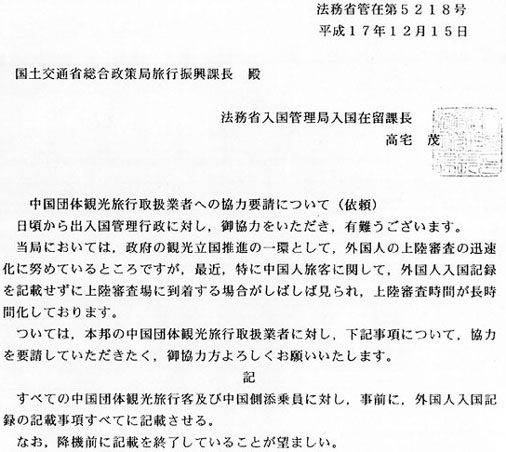 法務省管在第５２１８号
平成１７年１２月１５日
国土交通省総合政策局旅行振興課長　殿
法務省入国管理局入国在留課長
高宅　茂
中国団体観光旅行取扱業者への協力要請について（依頼）
日頃から出入国管理行政に対し，御協力をいただき，有難うございます。
当局においては，政府の観光立国推進の一環として，外国人の上陸審査の迅速
化に努めているところですが，最近，特に中国人旅客に関して，外国人入国記録
を記載せずに上陸審査場に到着する場合がしばしば見られ，上陸審査時間が長時
間化しております。
ついては，本邦の中国団体観光旅行取扱業者に対し，下記事項について，協力
を要請していただきたく，御協力方よろしくお願いいたします。
記
すべての中国団体観光旅行客及び中国側添乗員に対し，事前に，外国人入国記
録の記載事項すべてに記載させる。
なお，降機前に記載を終了していることが望ましい。